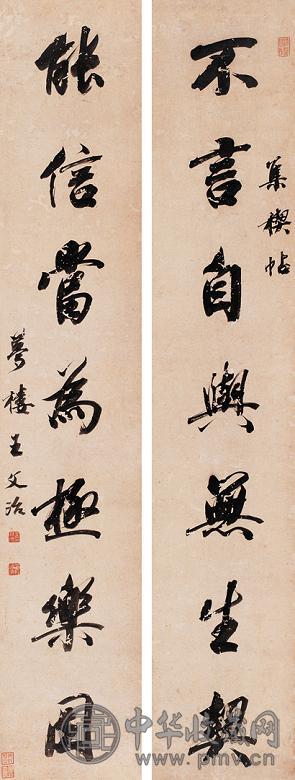 集禊帖
不言自與無生契
能信當為極樂因
夢樓王文治
中华收藏网
www.pmv.cn